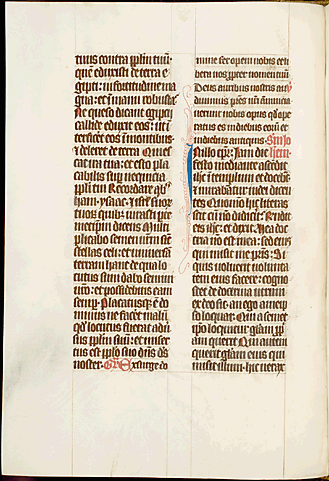 tuus contra pplm tuū·
quē eduxisti de terra e
gipti: in fortitudine ma
gna: et ī manu robusta
Ne queso dicant egiptii
callide eduxit eos: ut ī
terficeret eos ī montibus·
et deleret de terra Quies
cat ira tua: et esto pla
cabilis super nequicia
ppli tui Recordare
tuorū quibus iurasti per
metipm dicens Multi
plicabo semen urm sicut
stellas celi: et universā
terram hanc de qua lo
cutus sum dabo semini
uro: et possidebitis eam
semper Placatusque ē do
minus ne facet malū
qd locutus fuerat adu
sus pplm suū: et miser
tus est pplo suo dns ds
noster: Gr Exsurge do
mine fer opem nobis et li
bera nos propter nomen tuū·
Deus auribus nostris au
diuimus pres nri ānuncia
uerunt nobis opus qd ope
ratus es in diebus eorū et
in diebus antiquis
In illo tpr: Iam die
festo mediante ascēdit
ihc ī templum et docebat
et mirabantur iudei dicen
tes Quomō hic litteras
scit cū nō didicit· Rn̄dit
eis ihc: et dixit Mea doc
trina nō est mea: sed eius
qui misit me pris: Si
quis uoluerit uolunta
tem eius facere: cogno
scet de doctrina utrum
ex deo sit: an ego a meipo
loquar· Qui a semet
ipo loquitur: gliam pp
am querit Qui autem
querit gliam eius qui
misit illum· hic uerax